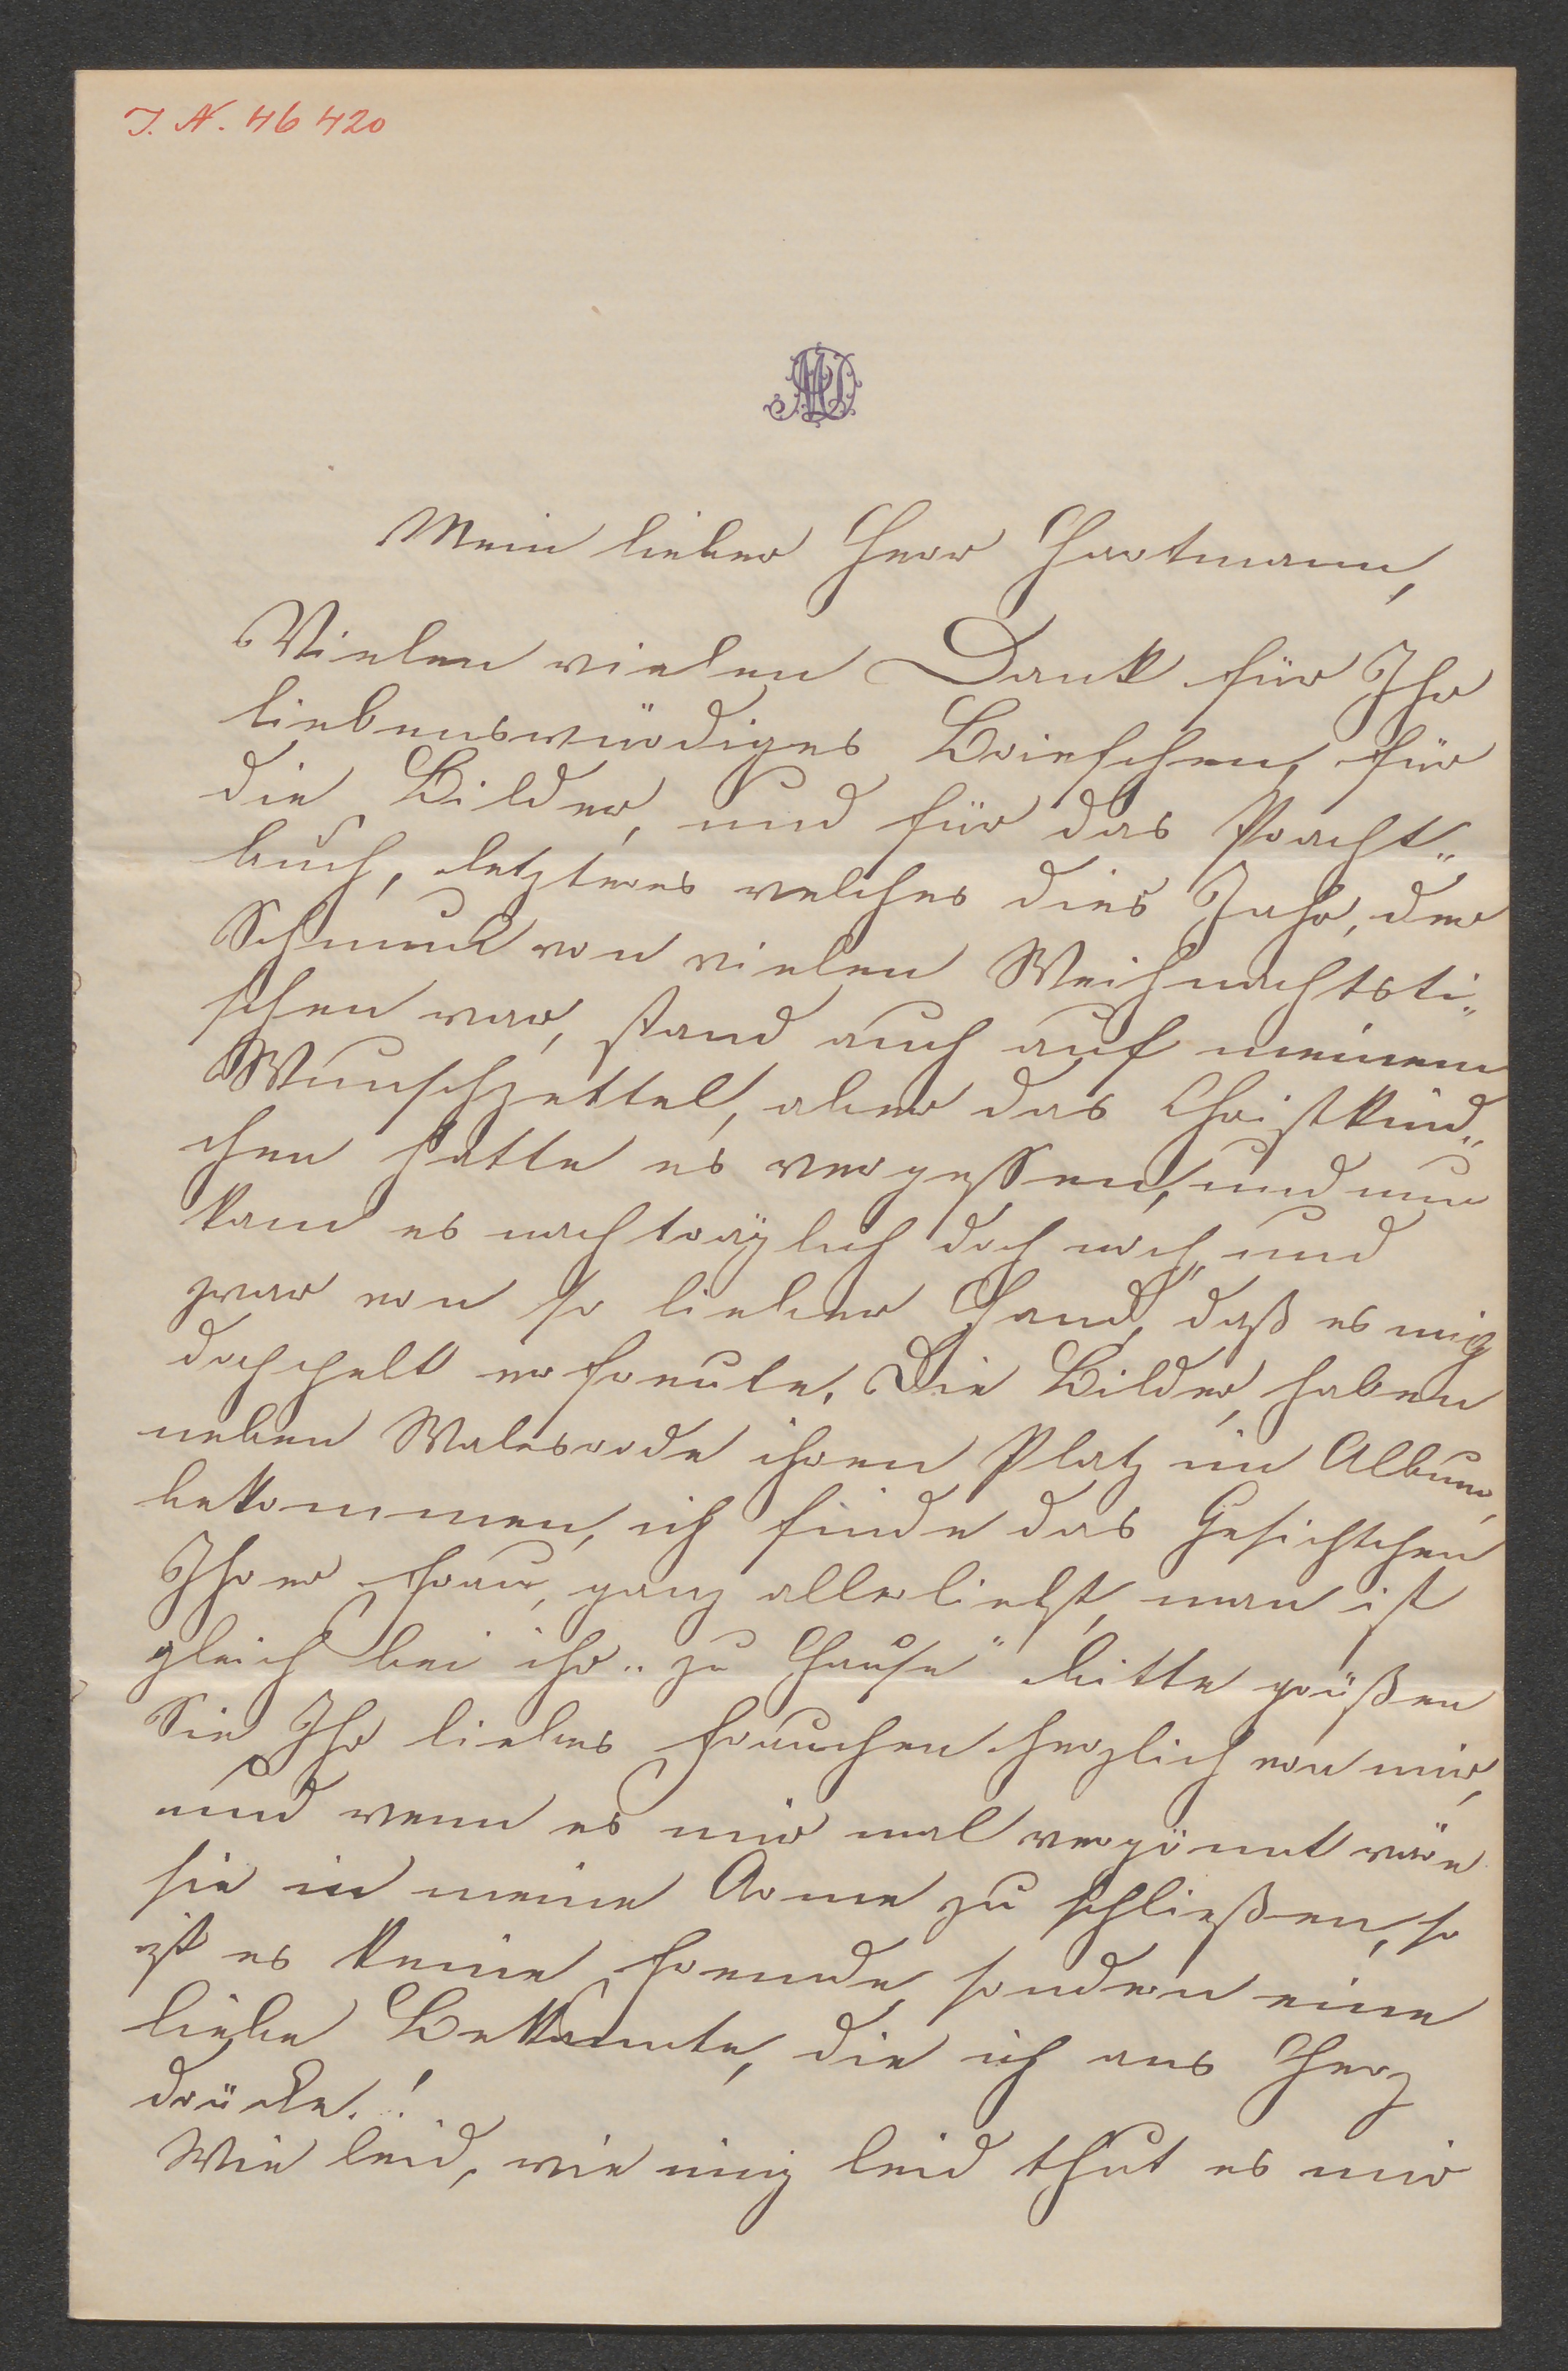 I. N. 46 420
Mein lieber Herr Hartmann,
Vielen vielen Dank für Ihr
liebenswürdiges Briefchen, für
die Bilder, und für das Pracht„
buch, letzteres welches dies Jahr, der
Schmuck von vielen Weihnachtsti„
schen war, stand auch auf meinem
Wunschzettel, aber das Christkind„
chen hatte es vergessen, und nun
kam es nachträglich doch noch, und
zwar von so lieber Hand, daß es mich
doppelt erfreute. Die Bilder, haben
neben Walesrode ihren Platz im Album,
bekommen, ich finde das Gesichtchen
Ihrer Frau, ganz allerliebst, man ist
gleich bei ihr „zu Hause" bitte grüßen
Sie Ihr liebes Frauchen herzlich von mir,
und wenn es mir mal vergönnt wäre
sie in meine Arme zu schließen, so
ist es keine Fremde, sondern eine
liebe Bekannte, die ich ans Herz
drücke.!
Wie leid, wie innig leid thut es mir